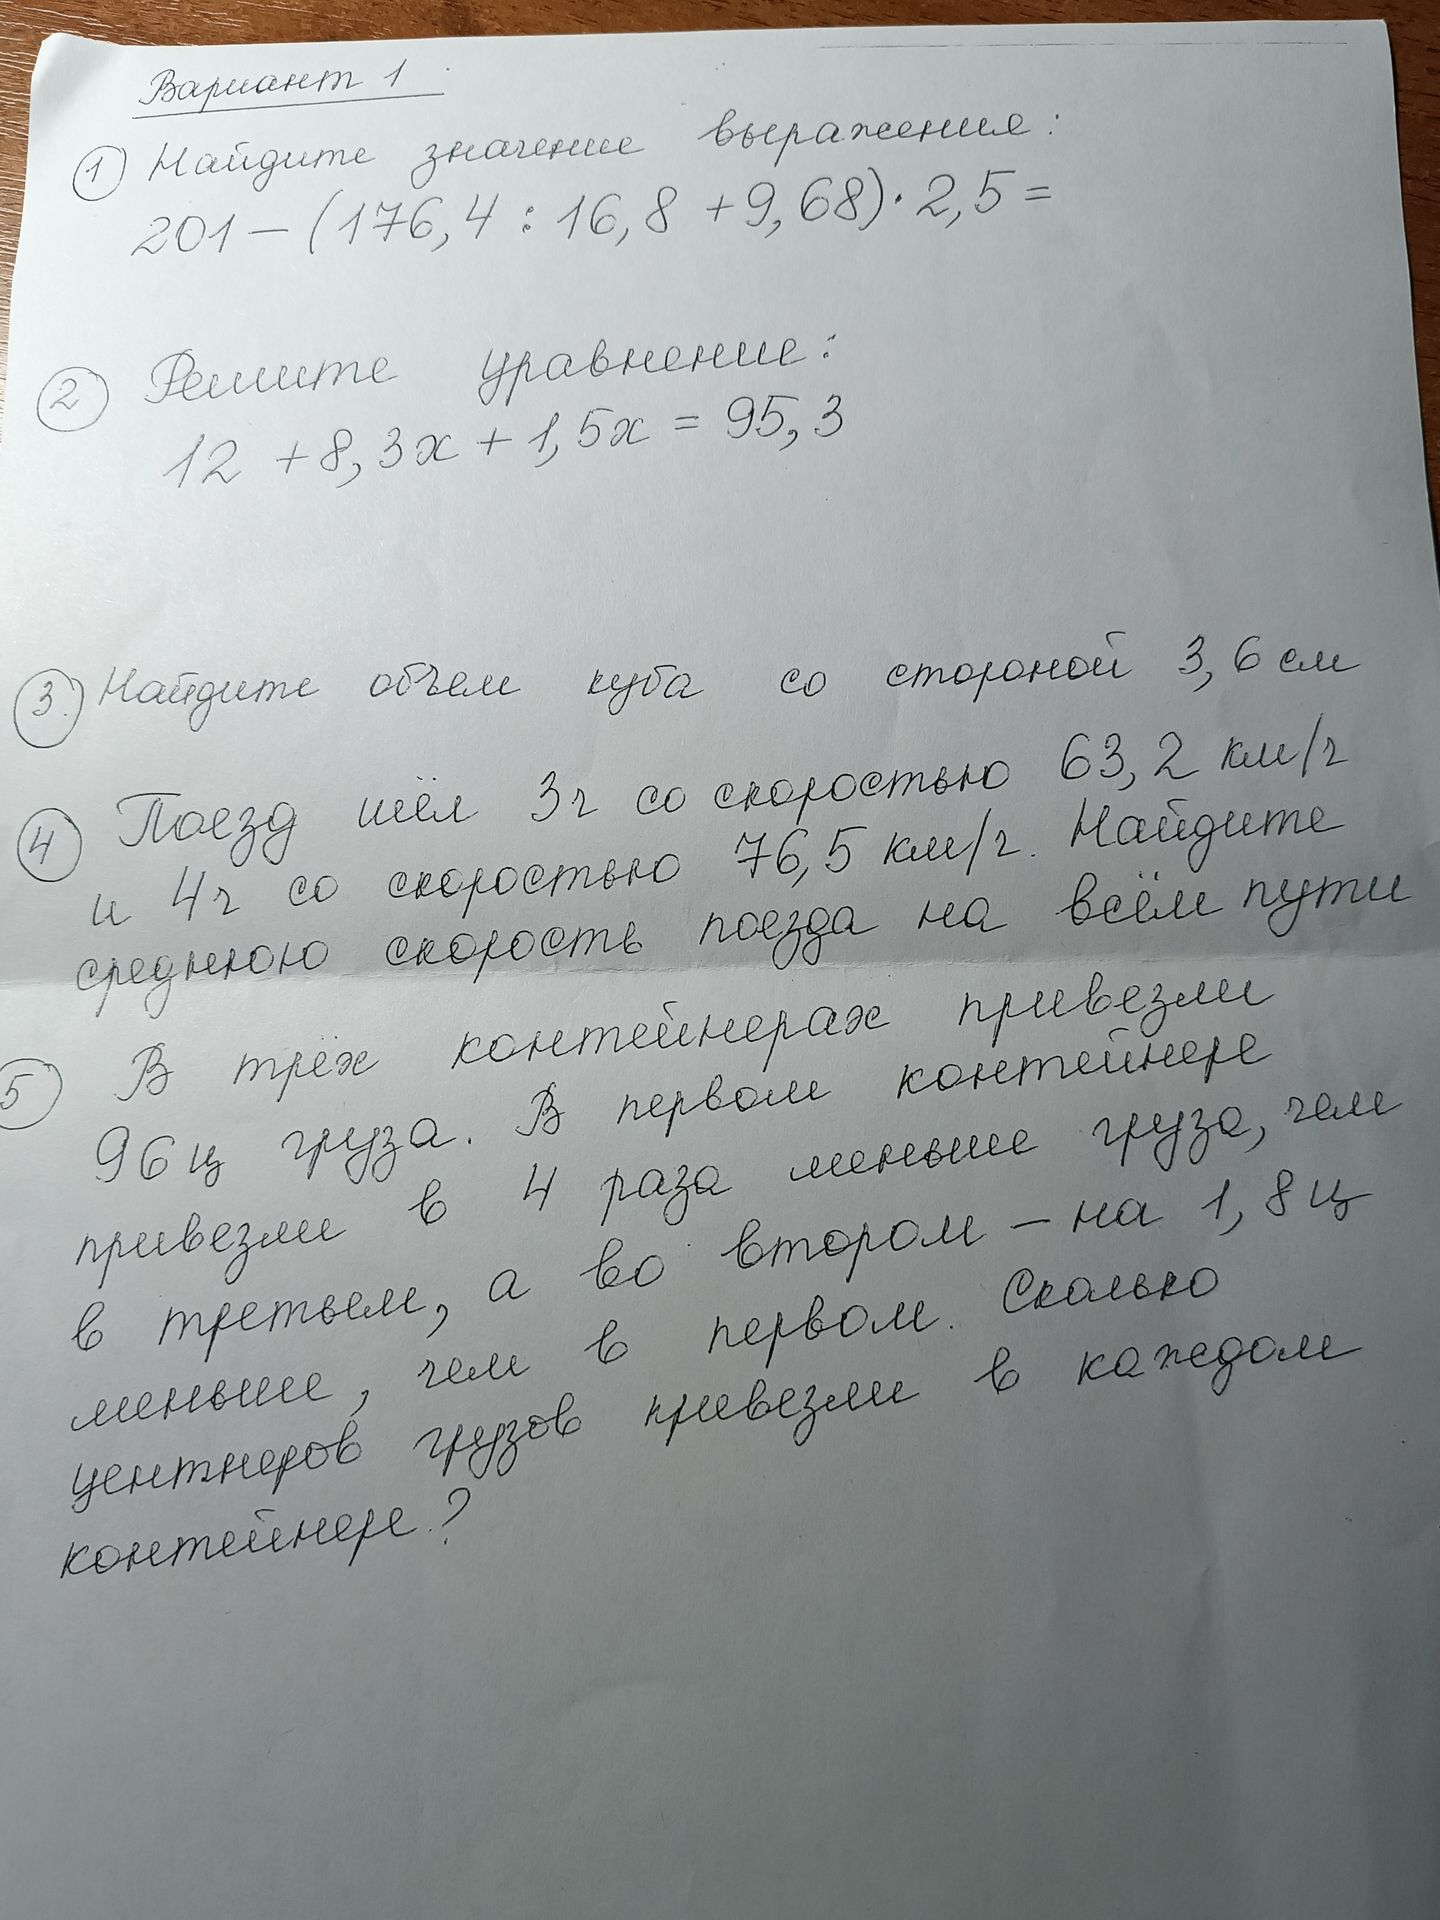 Вариант 1
① Найдите значение выражения:
201 – (176,4 : 16,8 + 9,68) · 2,5 =
② Решите уравнение:
12 + 8,3x + 1,5x = 95,3
③. Найдите объем куба со стороной 3,6 см
④ Поезд шёл 3ч со скоростью 63,2 км/ч
и 4ч со скоростью 76,5 км/ч. Найдите
среднюю скорость поезда на всём пути
⑤ В трёх контейнерах привезли
96 ц груза. В первом контейнере
привезли в 4 раза меньше груза, чем
в третьем, а во втором – на 1,8 ц
меньше, чем в первом. Сколько
центнеров грузов привезли в каждом
контейнере?